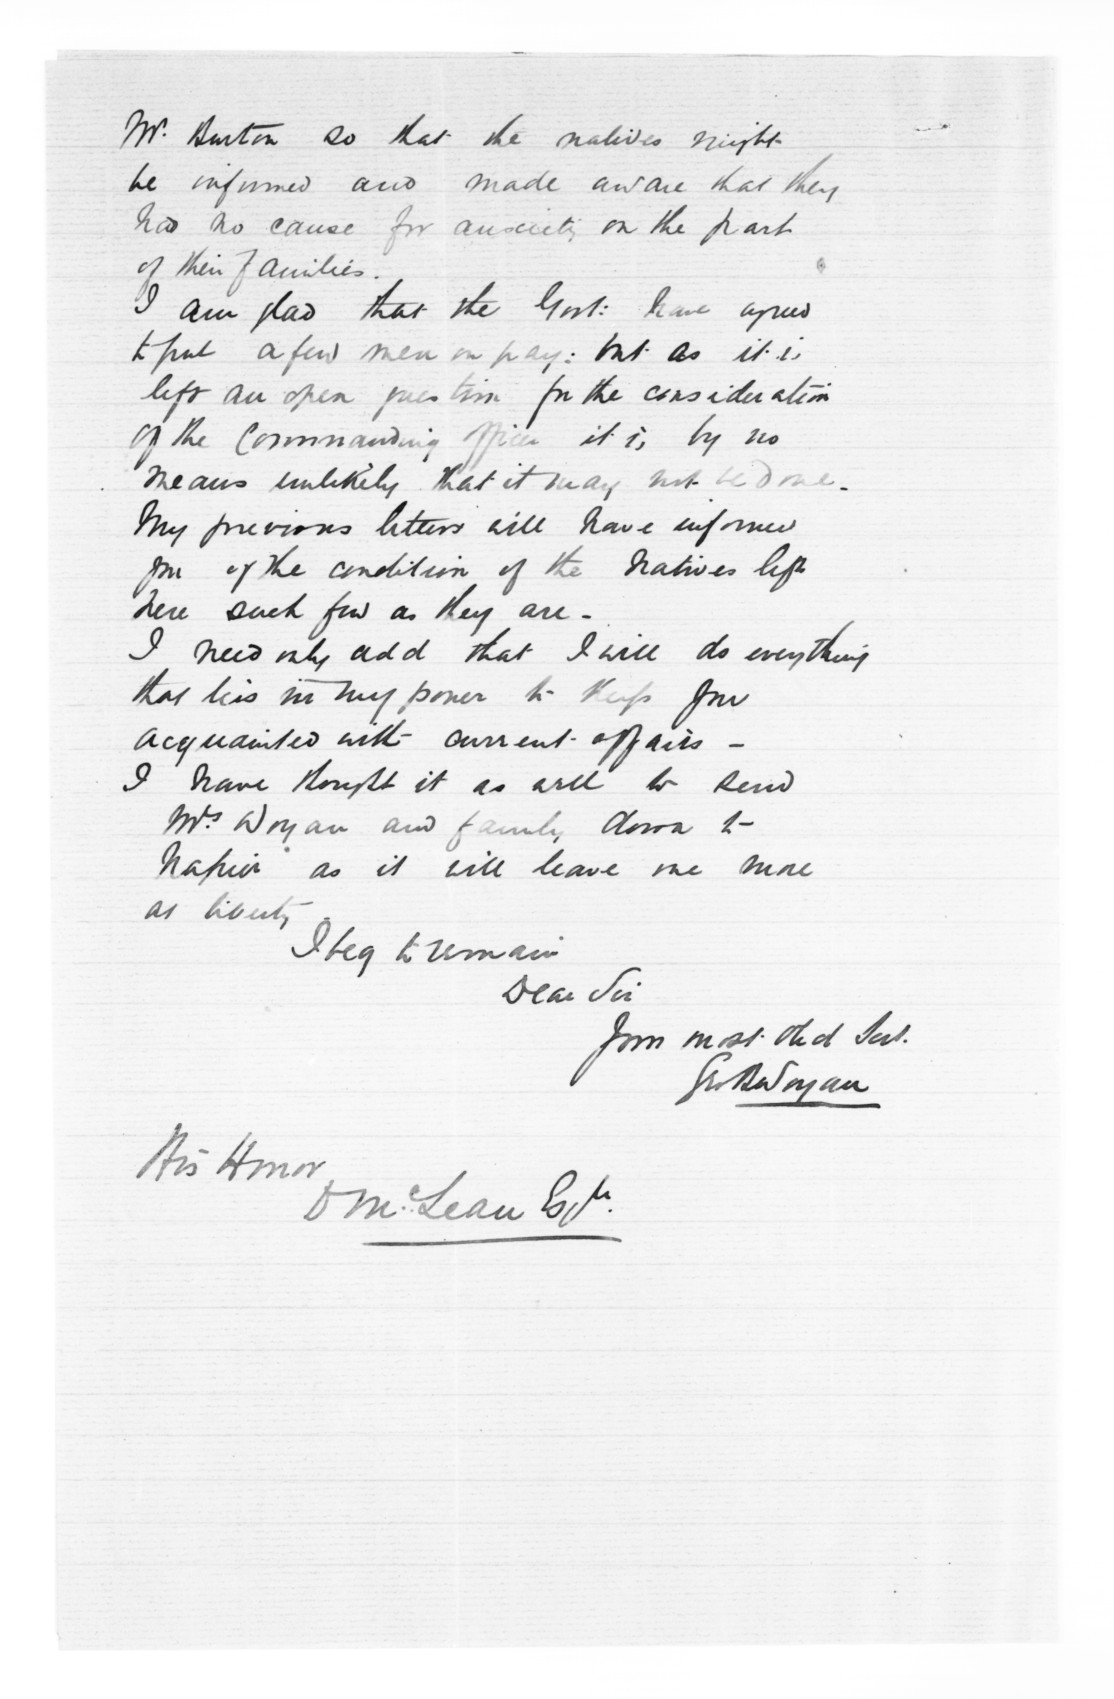 Mr. Burton so that the natives might
be informed and made aware that they
had no cause for anxiety on the part
of their families.
I am glad that the Govt: have agreed
to put a few men on pay: but as it is
left an open question for the consideration
of the Commanding officer it is by no
means unlikely that it may not be done.
My previous letters will have informed
you of the condition of the Natives left
here such few as they are -
I need only add that I will do everything
that lies in my power to keep you
acquainted with current affairs -
I have thought it as well to send
Mrs Woyan and family down to
Napier as it will leave me more
at liberty.
I beg to remain
Dear Sir
Your most obed Servt.
Geo B Woyan
His Honor
D McLean Esqr.